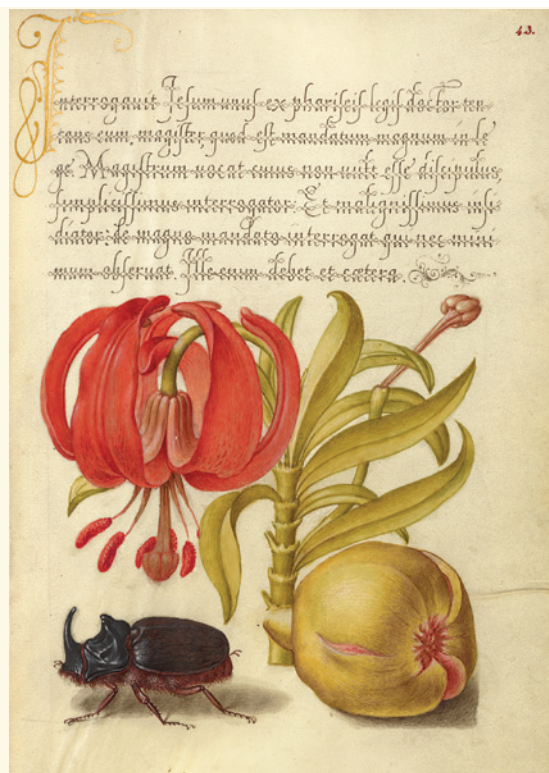 43.
Interrogauit Jesum unus ex phariseis legis doctor ten-
tans eum, magister, quod est mandatum magnum in le
ge. Magistrum uocat cuius non uult esse discipulus,
simplicissimus interrogator: Et malignissimus insi
diator: de magno mandato interrogat qui nec mini
mum obseruat. Ille enim debet et cætera.